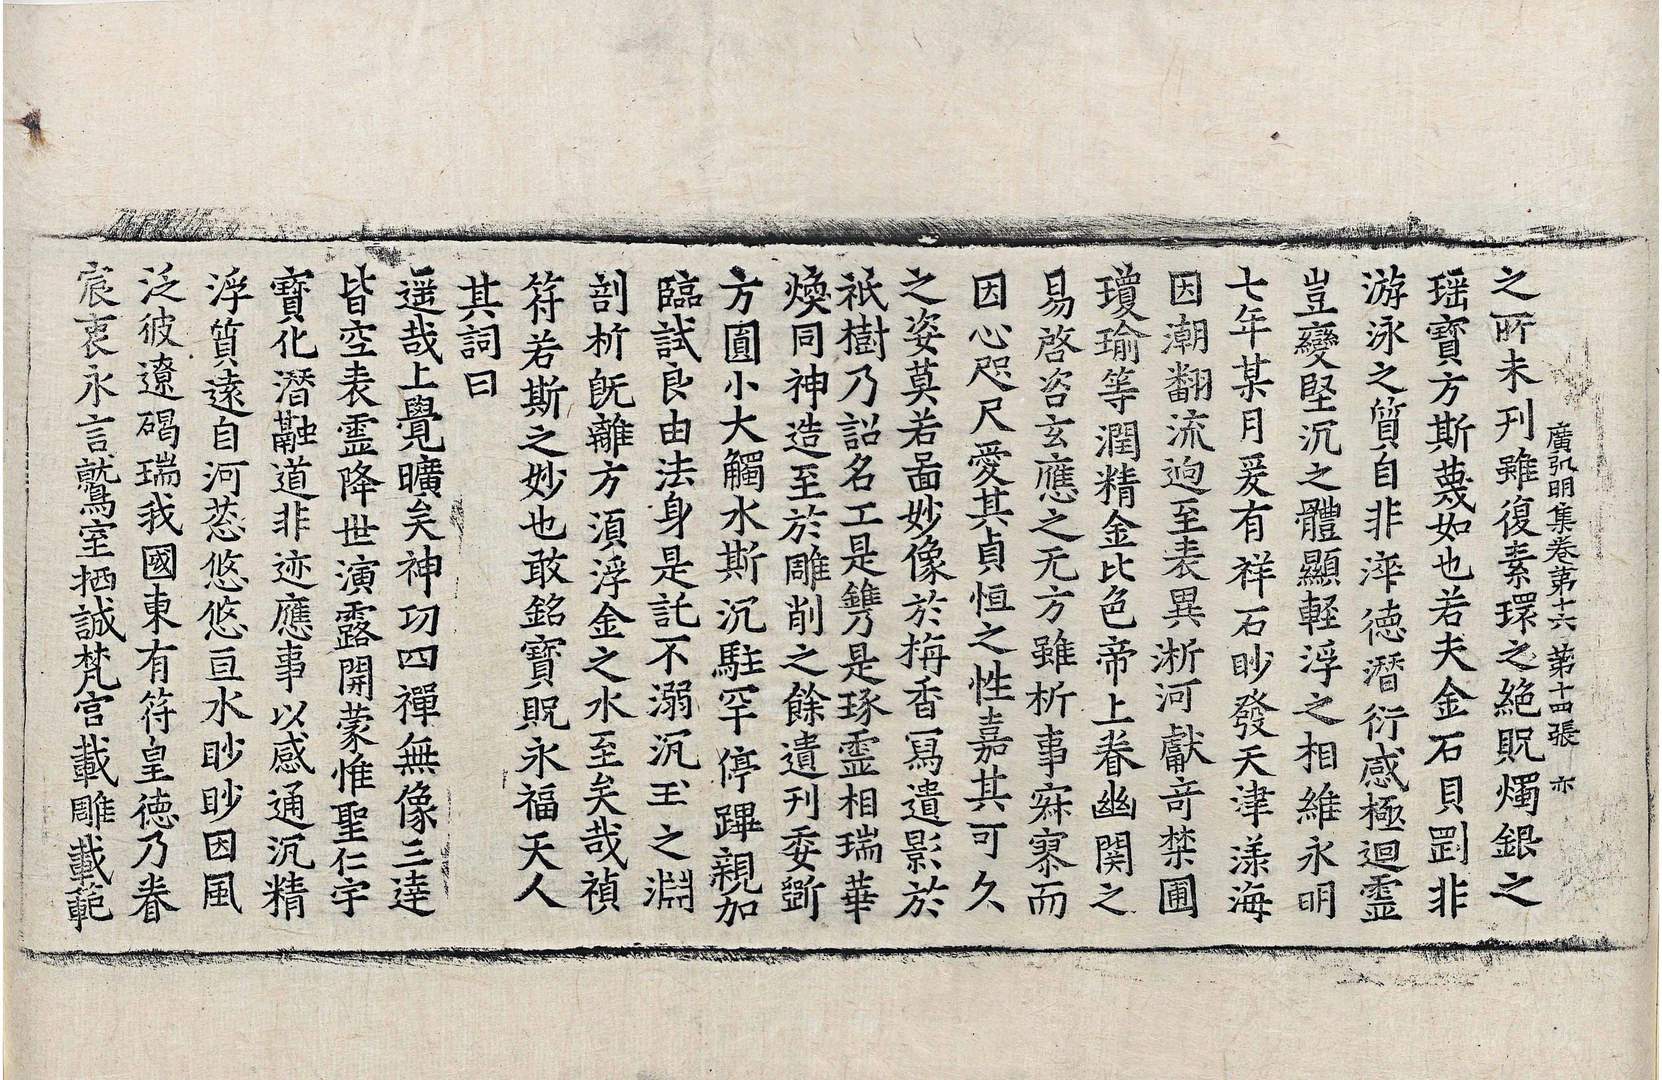 廣弘明集卷第十六 第十四張 亦
之所未刊雖復素環之絶貺燭銀之
瑶寶方斯蔑如也若夫金石貝剛非
游泳之質自非淬德潛衍感極迴霊
豈變堅沉之體顯軽浮之相維永明
七年某月爰有祥石眇發天津漾海
因潮翻流迥至表異淅河獻竒禁圃
瓊瑜等潤精金比色帝上眷幽関之
易啓咨玄應之无方雖析事寐寥而
因心咫尺愛其貞恒之性嘉其可久
之姿莫若啚妙像於栴香冩遺影於
祇樹乃詔名工是鐫是琢霊相瑞華
煥同神造至於雕削之餘遺刋委斵
方圓小大觸水斯沉駐罕停蹕親加
臨試良由法身是託不溺沉玉之淵
剖析旣離方須浮金之水至矣哉禎
符若斯之妙也敢銘寶貺永福天人
其詞曰
遥哉上覺曠矣神功四禪無像三達
皆空表霊降世演露開蒙惟聖仁宇
寶化潛融道非迹應事以感通沉精
浮質遠自河葱悠悠亘水眇眇因風
泛彼遼碣瑞我國東有符皇德乃眷
宸衷永言鷲室栖誠梵宫載雕載範